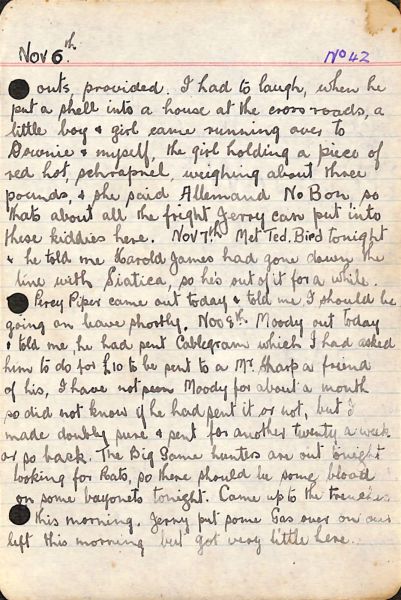 Nov 6th. No 42
outs, provided. I had to laugh, when he
put a shell into a house at the cross roads, a
little boy & girl came running over to
Downie & myself, the girl holding a piece of
red hot, schrapnel, weighing about three
pounds, & she said Allemand No Bon, so
thats about all the fright Jerry can put into
these kiddies here. Nov 7th Met Ted. Bird tonight
& he told me Harold James had gone down the
line with Siatica, so he's out of it for a while.
Percy Piper came out today & told me I should be
going on leave shortly. Nov 8th. Moody out today
& told me, he had sent Cablegram which I had asked
him to do for £10 to be sent to a Mr. Sharp a friend
of his, I have not seen Moody for about a month
so did not know if he had sent it or not, but I
made doubly sure & sent for another twenty a week
or so back. The Big Game hunters are out tonight
looking for Rats, so there should be some blood
on some bayonets tonight. Came up to the trenches
this morning. Jerry put some Gas over on our
left this morning but got very little here.